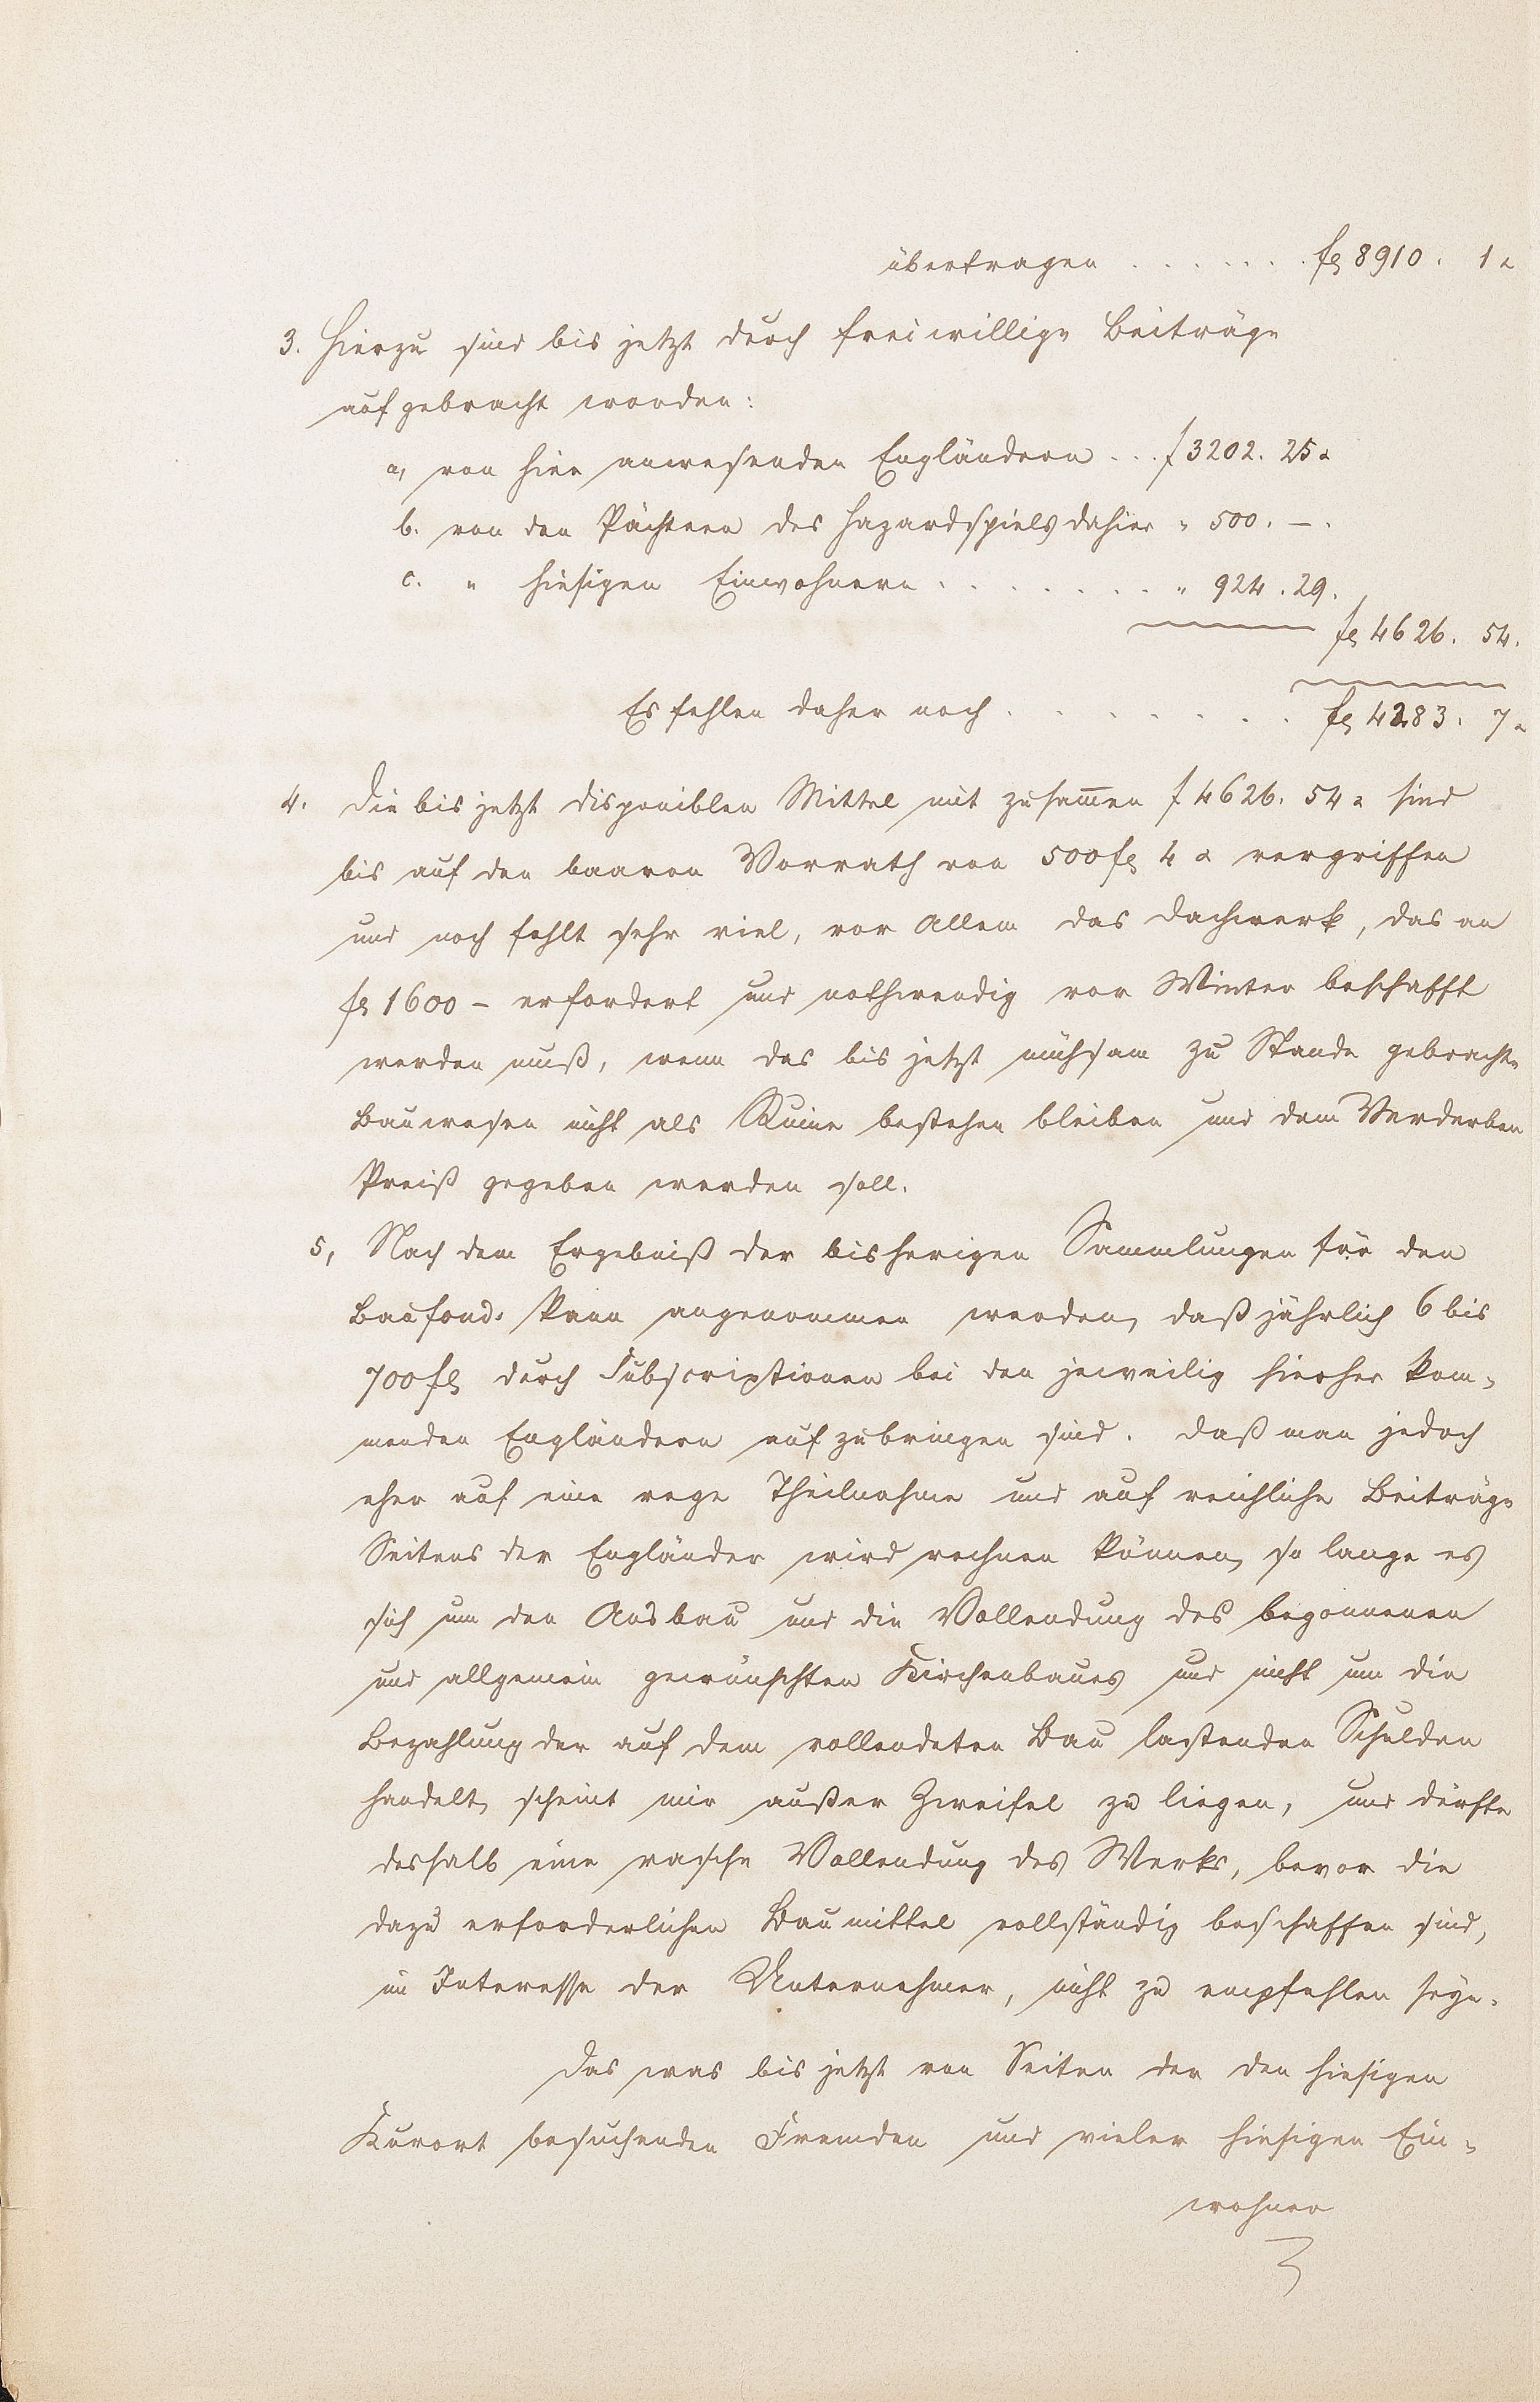 übertragen . . . . . . fl 8910. 1 x
3. Hierzu sind bis jetzt durch freiwillige Beiträge
aufgebracht worden:
a, von hier anwesenden Engländern . . . f 3202. 25 x
b. von den Pächtern des Hazardspiels dahier " 500. – .
c. " hiesigen Einwohnern . . . . . . . " 924. 29.
fl 4626. 54.
Es fehlen daher noch . . . . . . . fl 4283. 7 x
4. Die bis jetzt disponiblen Mittel mit zusammen f 4626. 54 x sind
bis auf den baaren Vorrath von 500 fl 4 x vergriffen
und noch fehlt sehr viel, vor Allem das Dachwerk, das an
fl 1600 – erfordert und nothwendig vor Winter beschafft
werden muß, wenn das bis jetzt mühsam zu Stande gebrachte
Bauwesen nicht als Ruine bestehen bleiben und dem Verderben
Preiß gegeben werden soll.
5, Nach dem Ergebniß der bisherigen Sammlungen für den
Baufond. kann angenommen werden, daß jährlich 6 bis
700 fl durch Subscriptionen bei den jeweilig hierher kom-
menden Engländern aufzubringen sind. Daß man jedoch
eher auf eine rege Theilnahme und auf reichliche Beiträge
Seitens der Engländer wird rechnen können, so lange es
sich um den Ausbau und die Vollendung des begonnenen
und allgemein gewünschten Kirchenbaues und nicht um die
Bezahlung der auf dem vollendeten Bau lastenden Schulden
handelt, scheint mir außer Zweifel zu liegen, und dürfte
deshalb eine rasche Vollendung des Werks, bevor die
dazu erforderlichen Baumittel vollständig beschaffen sind,
im Interesse der Unternehmer, nicht zu empfehlen seyn.
Das was bis jetzt von Seiten der den hiesigen
Kurort besuchenden Fremden und vieler hiesigen Ein-
wohner